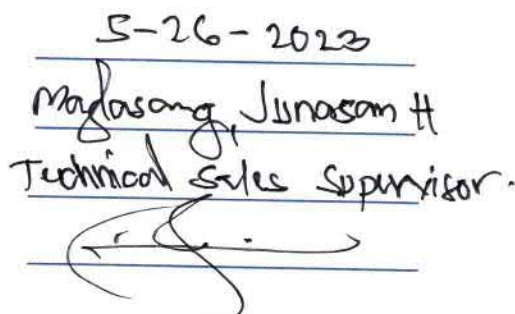 5-26-2023
Maglasang, Junasam H
Technical Sales Supervisor.